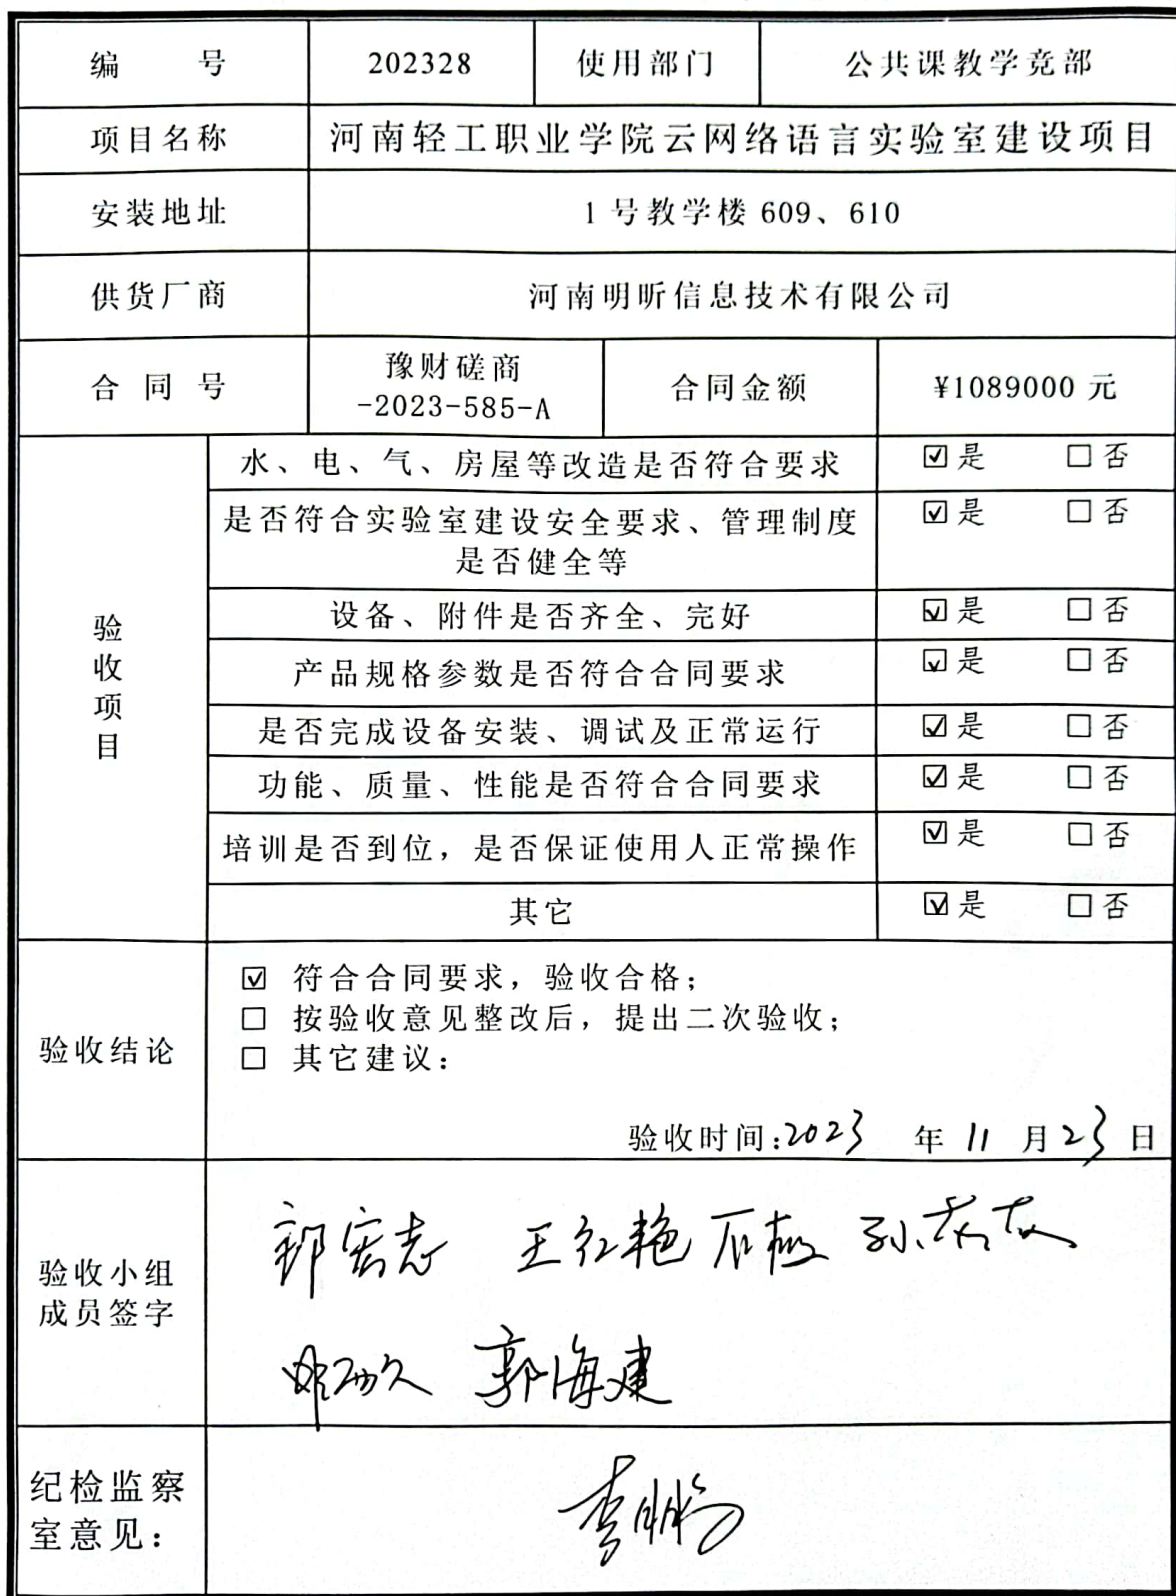 编 号 202328 使用部门 公共课教学竞部
项目名称 河南轻工职业学院云网络语言实验室建设项目
安装地址 1号教学楼 609、610
供货厂商 河南明昕信息技术有限公司
合同号 豫财磋商
-2023-585-A 合同金额 ¥1089000 元
验收项目
水、电、气、房屋等改造是否符合要求 ☑是 □否
是否符合实验室建设安全要求、管理制度
是否健全等 ☑是 □否
设备、附件是否齐全、完好 ☑是 □否
产品规格参数是否符合合同要求 ☑是 □否
是否完成设备安装、调试及正常运行 ☑是 □否
功能、质量、性能是否符合合同要求 ☑是 □否
培训是否到位，是否保证使用人正常操作 ☑是 □否
其它 ☑是 □否
验收结论
☑ 符合合同要求，验收合格；
□ 按验收意见整改后，提出二次验收；
□ 其它建议：
验收时间:2023 年 11 月 23 日
验收小组
成员签字
王红艳
郭海建
纪检监察
室意见：